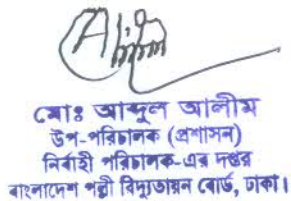 মোঃ আব্দুল আলীম
উপ-পরিচালক (প্রশাসন)
নির্বাহী পরিচালক-এর দপ্তর
বাংলাদেশ পল্লী বিদ্যুতায়ন বোর্ড, ঢাকা।